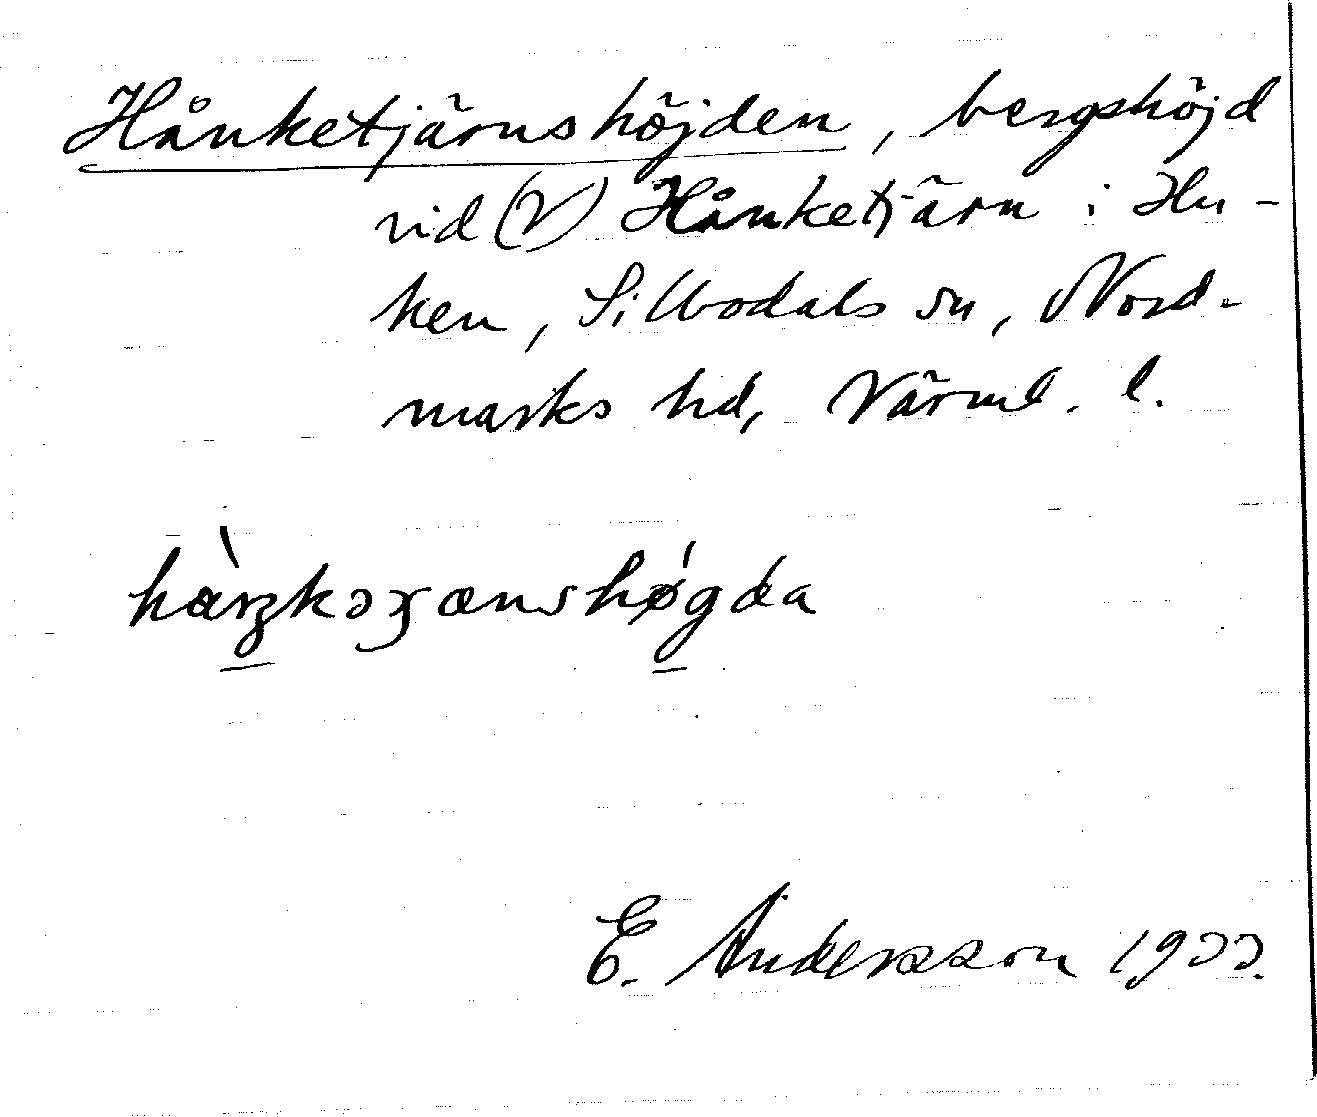 Hånketjärnshöjden, bergshöjd
vid (V) Hånketjärn i Hu-
ken, Sillbodals sn, Nord-
marks hd, Värml. l.
E. Andersson 1933.